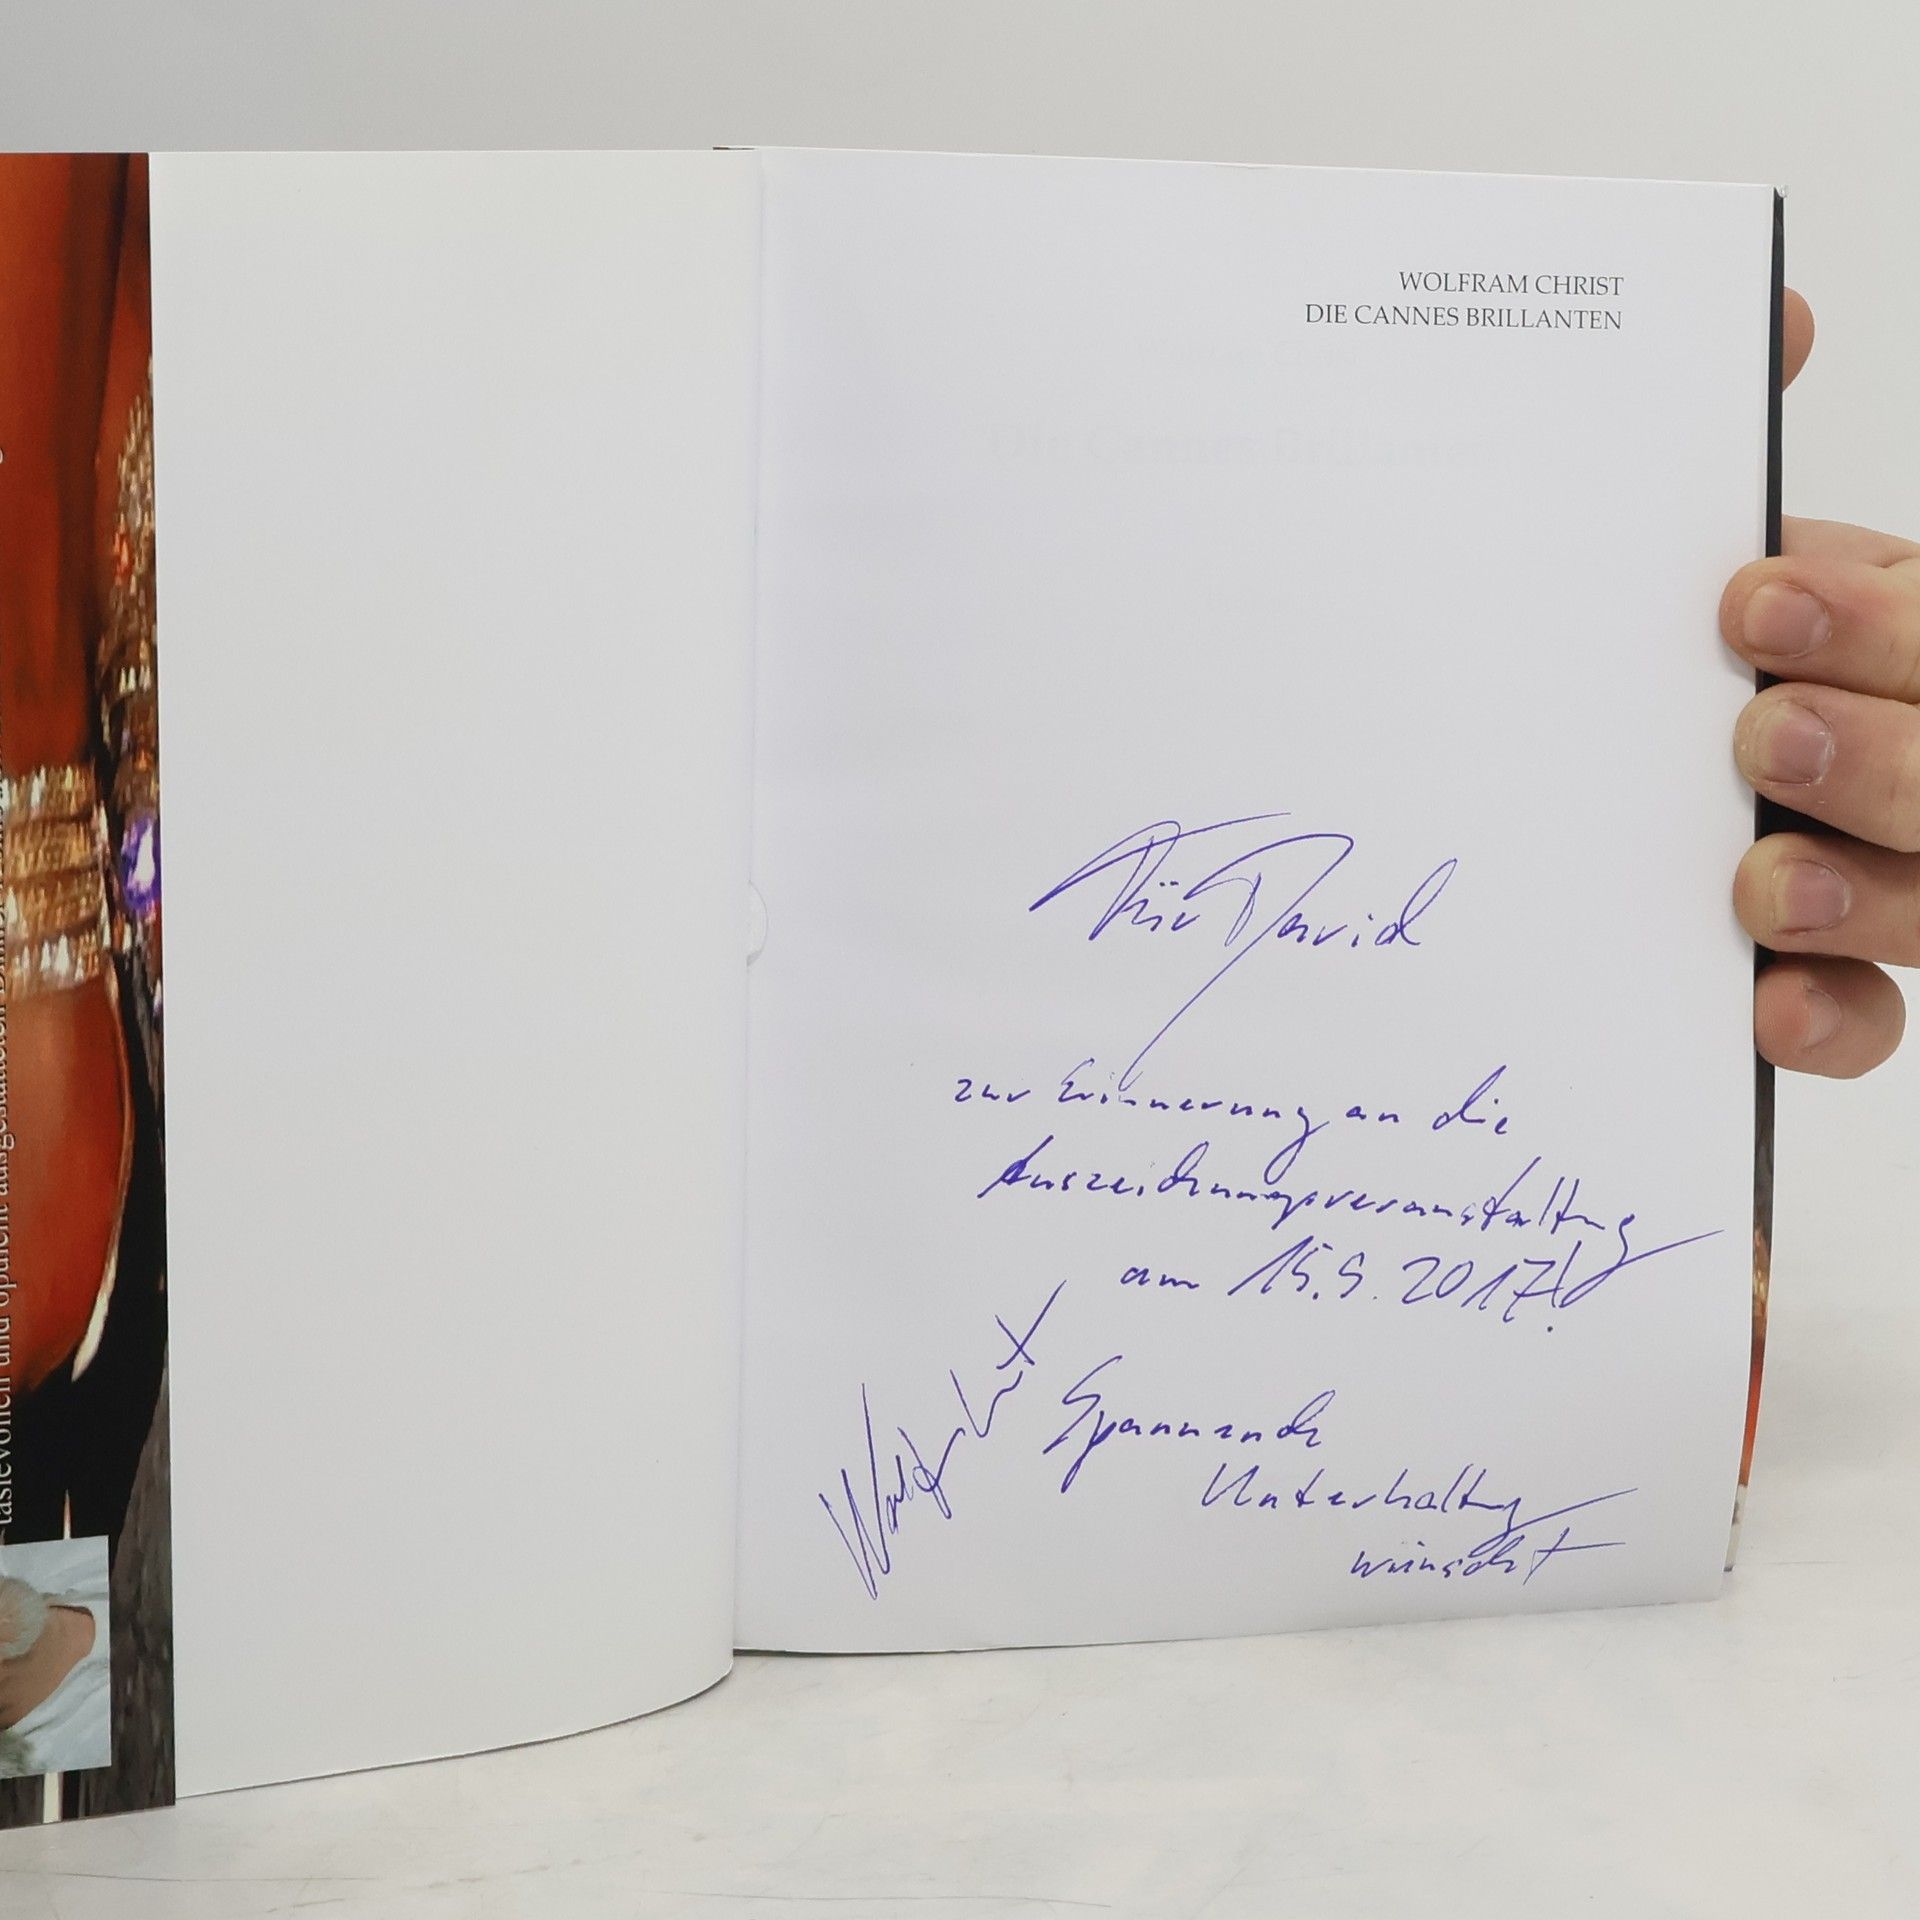 WOLFRAM CHRIST
DIE CANNES BRILLANTEN
Die Cannes Brillanten
Für David
zur Erinnerung an die
Auszeichnungsveranstaltung
am 15.9.2017!
Spannende
Unterhaltung
wünscht
Wolfram Christ
tasievollen und opulent ausgestatteten Bilder